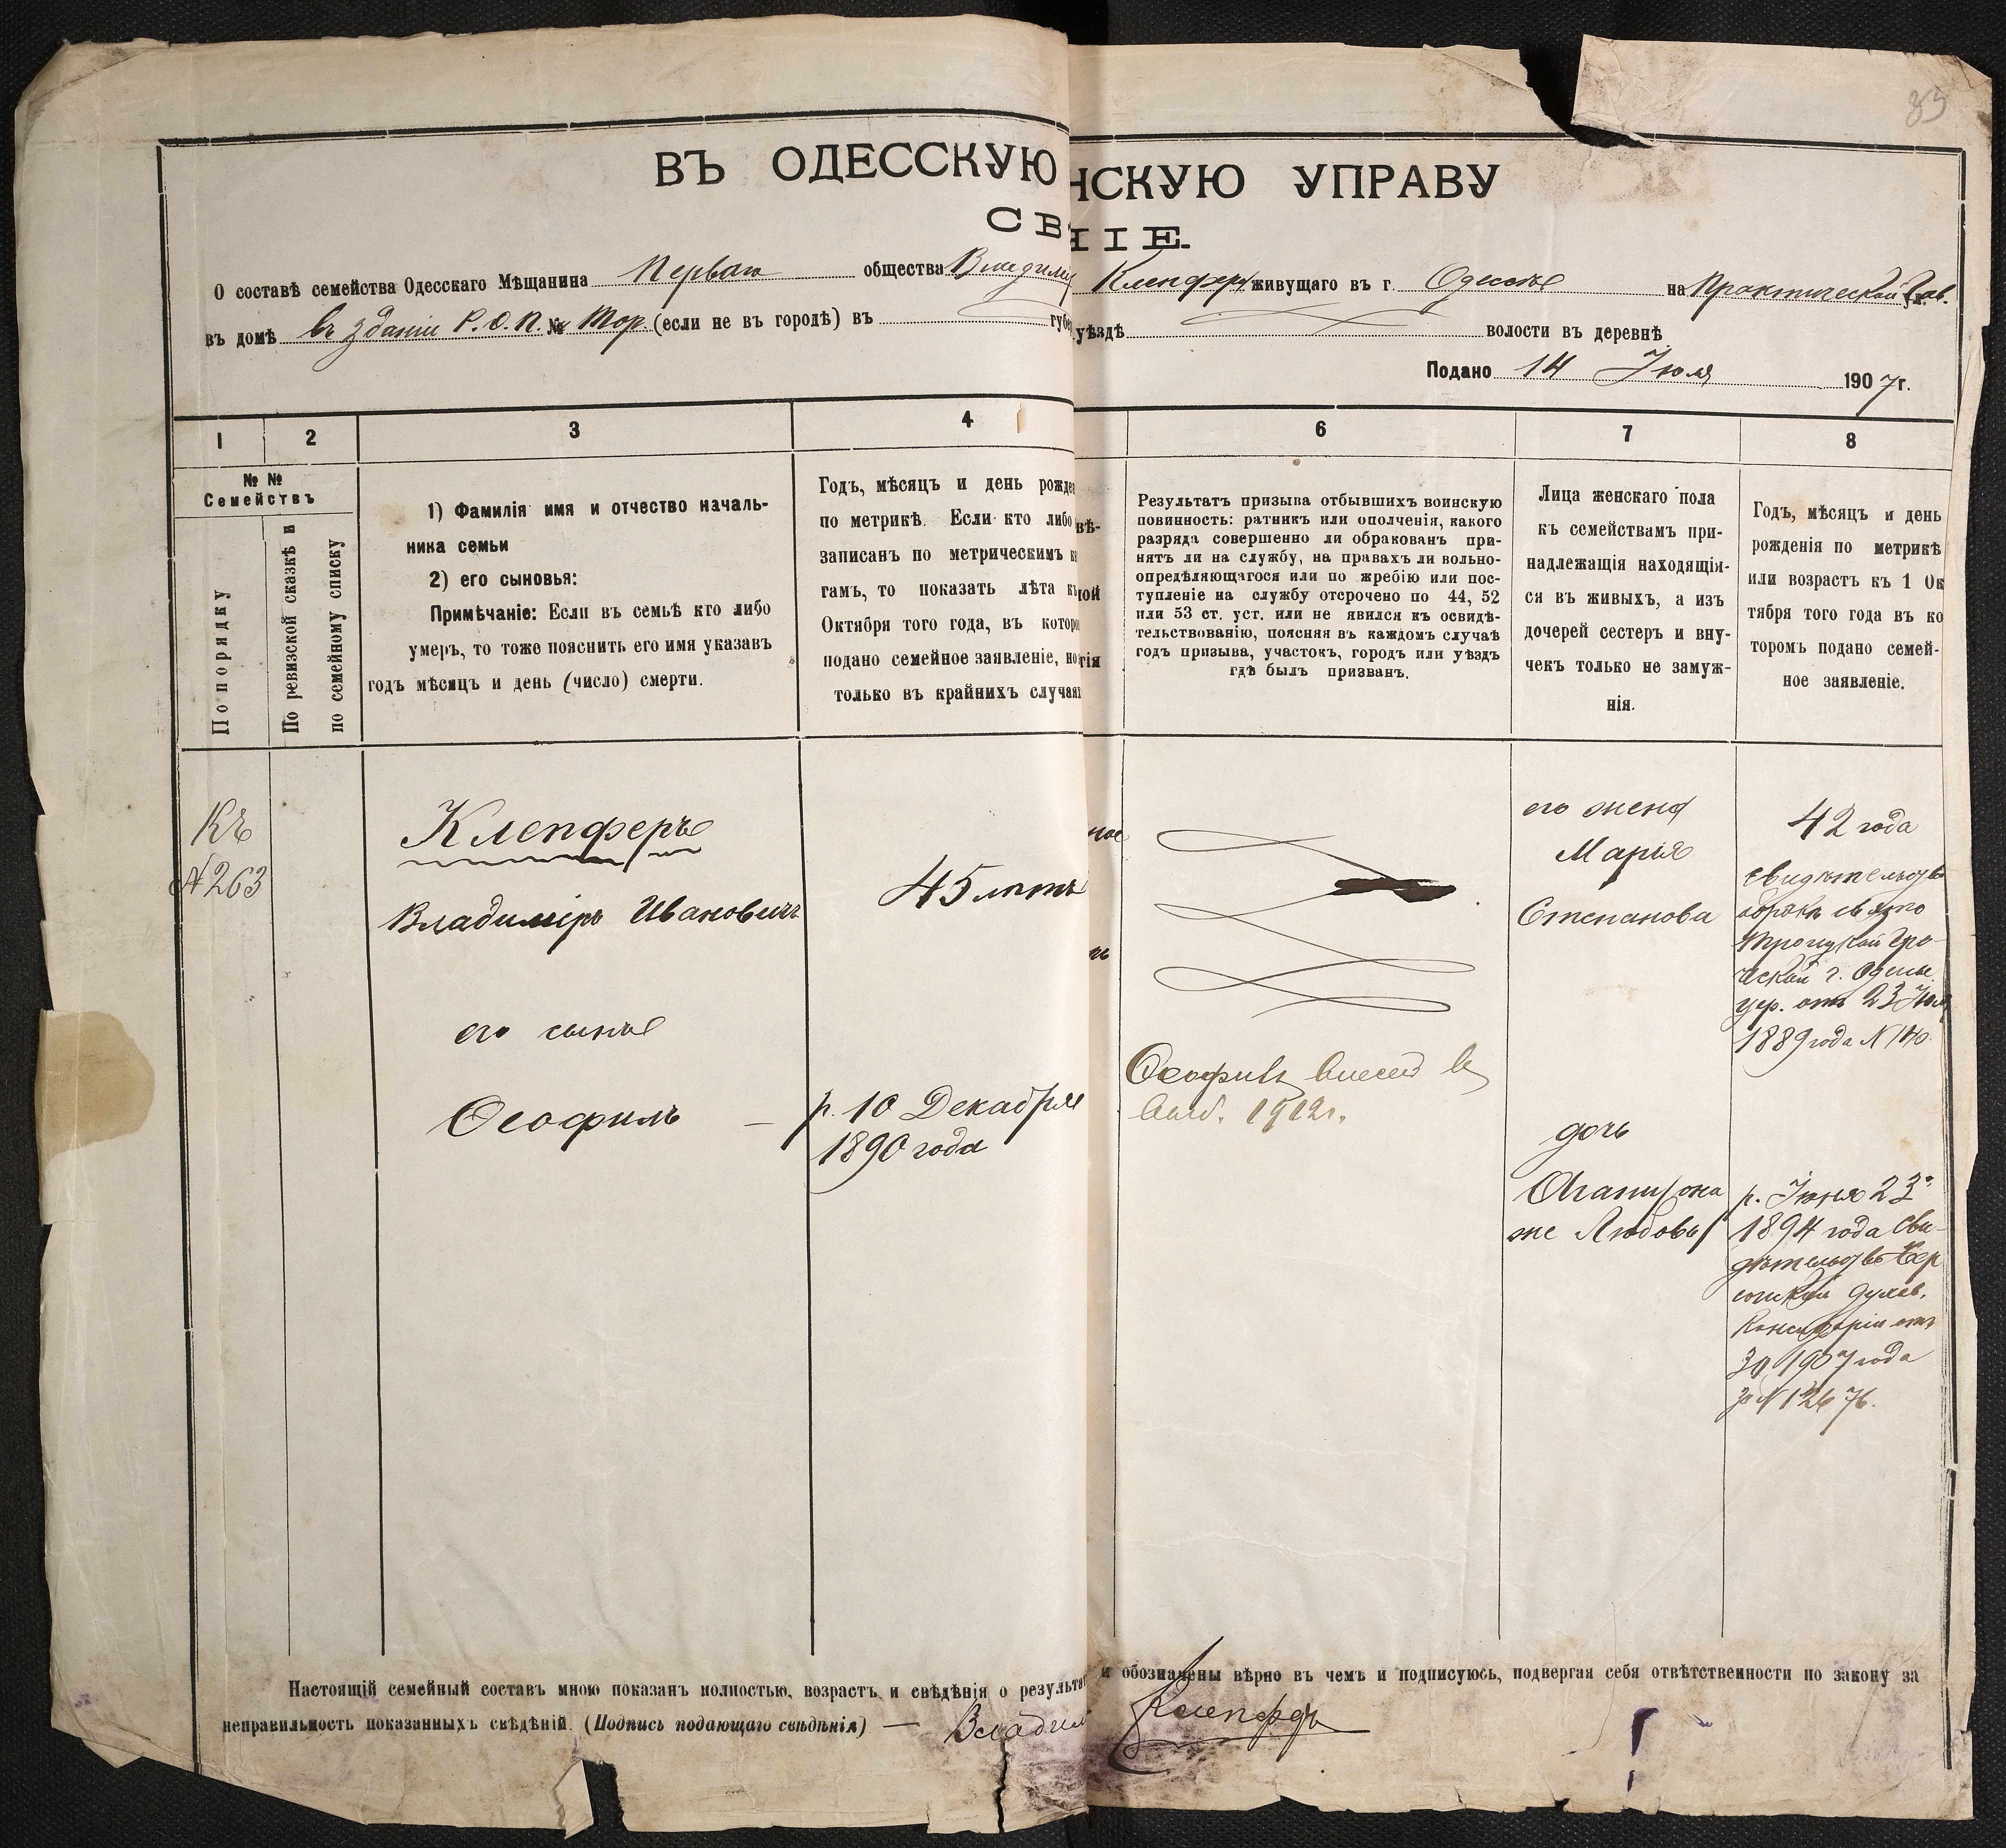 39
ВЪ ОДЕССКУЮ НСКУЮ УПРАВУ
СВ НІЕ.
О составѣ семейства Одесскаго Мѣщанина Перваго общества Владимі Клепферъ живущаго въ г. Одессѣ на Практической Гав.
въ домѣ въ зданіи Р. О. П. № Тор. (если не въ городѣ) въ губе уѣздѣ волости въ деревнѣ
Подано 14 Іюля 1907 г.
1 2 3 4 6 7 8
№ №
Семействъ
По порядку
По ревизской сказкѣ и
по семейному списку
1) Фамилія имя и отчество началь-
ника семьи
2) его сыновья:
Примѣчаніе: Если въ семьѣ кто либо
умеръ, то тоже пояснить его имя указавъ
годъ мѣсяцъ и день (число) смерти.
Годъ, мѣсяцъ и день рожде
по метрикѣ. Если кто либо
записанъ по метрическимъ к
гамъ, то показать лѣта къ
Октября того года, въ которо
подано семейное заявленіе, но
только въ крайнихъ случая
вѣ-
той
гія
Результатъ призыва отбывшихъ воинскую
повинность: ратникъ или ополченія, какого
разряда совершенно ли обракованъ при-
нятъ ли на службу, на правахъ ли вольно-
опредѣляющагося или по жребію или пос-
тупленіе на службу отсрочено по 44, 52
или 53 ст. уст. или не явился къ освидѣ-
тельствованію, поясняя въ каждомъ случаѣ
годъ призыва, участокъ, городъ или уѣздъ
гдѣ былъ призванъ.
Лица женскаго пола
къ семействамъ при-
надлежащія находящія-
ся въ живыхъ, а изъ
дочерей сестеръ и вну-
чекъ только не замуж-
нія.
Годъ, мѣсяцъ и день
рожденія по метрикѣ
или возрастъ къ 1 Ок
тября того года въ ко
торомъ подано семей-
ное заявленіе.
Къ
№ 263
Клепферъ
Владиміръ Ивановичъ
45 лѣтъ
ное
его сынъ
Ѳеофилъ —
р. 10 Декабря
1890 года
Ѳеофилъ внесенъ въ
1912 г.
его жена
Марія
Степанова
42 года
свидѣтельство
о бракѣ свято
Троицкой Гре-
ческой г. Одессы
цер. отъ 23 Іюл
1889 года № 140
дочь
Агапи/она
же Любовь/
р. Іюня 23го
1894 года Сви-
дѣтельство Хер
сонской духов.
Консисторіи отъ
1907 года
за № 12676.
Настоящій семейный составъ мною показанъ полностью, возрастъ и свѣдѣнія о результат и обозначены вѣрно въ чемъ и подписуюсь, подвергая себя отвѣтственности по закону за
неправильность показанныхъ свѣдѣній. (Подпись подающаго свѣдѣнія) — Владим Клепферъ